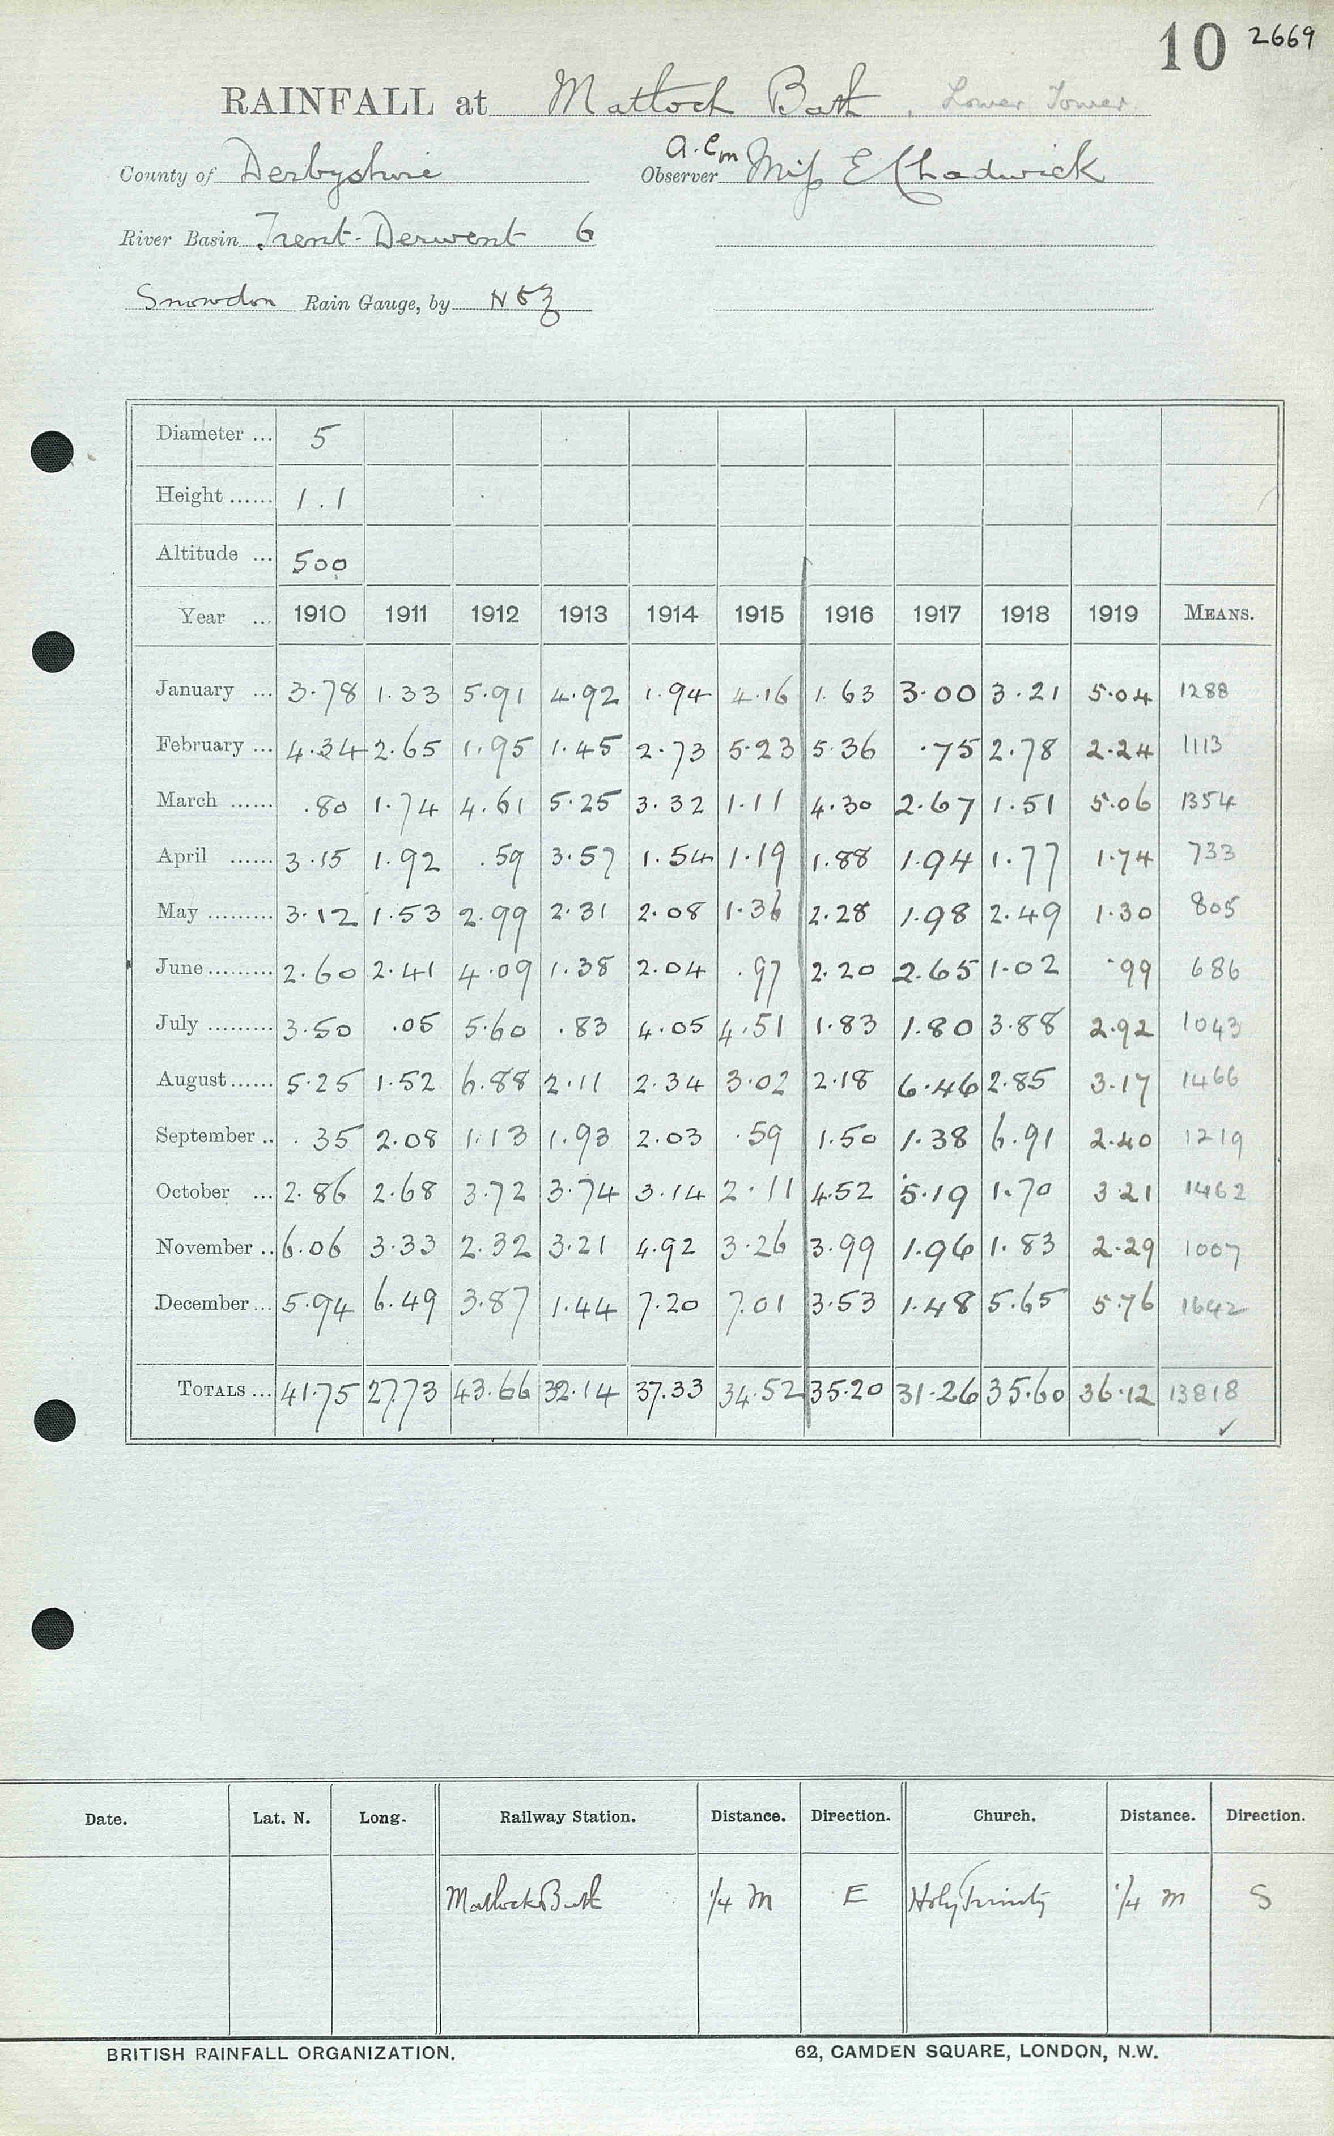 10 2669
RAINFALL at Matlock Bath, Lower Tower
a.e.m
County of Derbyshire Observer Miss E Chadwick
River Basin Trent-Derwent 6
Snowdon Rain Gauge, by N & Z
Diameter ... 5
Height ...... 1.1
Altitude ... 500
Year ... 1910 1911 1912 1913 1914 1915 1916 1917 1918 1919 MEANS.
January ... 3.78 1.33 5.91 4.92 1.94 4.16 1.63 3.00 3.21 5.04 1288
February ... 4.34 2.65 1.95 1.45 2.73 5.23 5.36 .75 2.78 2.24 1113
March ...... .80 1.74 4.61 5.25 3.32 1.11 4.30 2.67 1.51 5.06 1354
April ...... 3.15 1.92 .59 3.57 1.54 1.19 1.88 1.94 1.77 1.74 733
May ......... 3.12 1.53 2.99 2.31 2.08 1.36 2.28 1.98 2.49 1.30 805
June ......... 2.60 2.41 4.09 1.38 2.04 .97 2.20 2.65 1.02 .99 686
July ......... 3.50 .05 5.60 .83 4.05 4.51 1.83 1.80 3.88 2.92 1043
August ...... 5.25 1.52 6.88 2.11 2.34 3.02 2.18 6.46 2.85 3.17 1466
September .. .35 2.08 1.13 1.93 2.03 .59 1.50 1.38 6.91 2.40 1219
October ... 2.86 2.68 3.72 3.74 3.14 2.11 4.52 5.19 1.70 3.21 1462
November .. 6.06 3.33 2.32 3.21 4.92 3.26 3.99 1.96 1.83 2.29 1007
December ... 5.94 6.49 3.87 1.44 7.20 7.01 3.53 1.48 5.65 5.76 1642
TOTALS ... 41.75 27.73 43.66 32.14 37.33 34.52 35.20 31.26 35.60 36.12 13818
✓
Date. Lat. N. Long. Railway Station. Distance. Direction. Church. Distance. Direction.
Matlock Bath 1/4 m E Holy Trinity 1/4 m S
BRITISH RAINFALL ORGANIZATION. 62, CAMDEN SQUARE, LONDON, N.W.